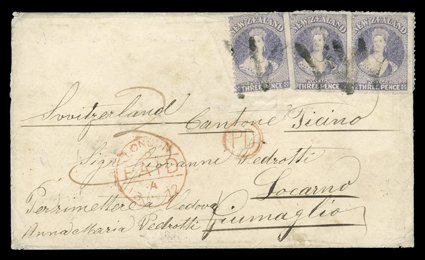 NEW ZEALAND NEW ZEALAND NEW ZEALAND
THREE PENCE THREE PENCE THREE PENCE
Switzerland
Cantone Ticino
3
LONDON
PAID
A
PD
Sigr Giovanni Pedrotti
Locarno
Per rimettere a Vedova
Fiumaglio
Anna Maria Pedrotti